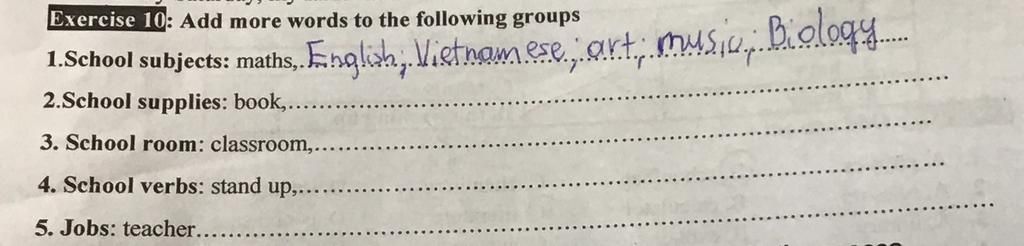 Exercise 10: Add more words to the following groups
1.School subjects: maths,.English; Vietnamese; art; music; Biology......
2.School supplies: book,................................................................
3. School room: classroom,................................................................
4. School verbs: stand up,................................................................
5. Jobs: teacher................................................................